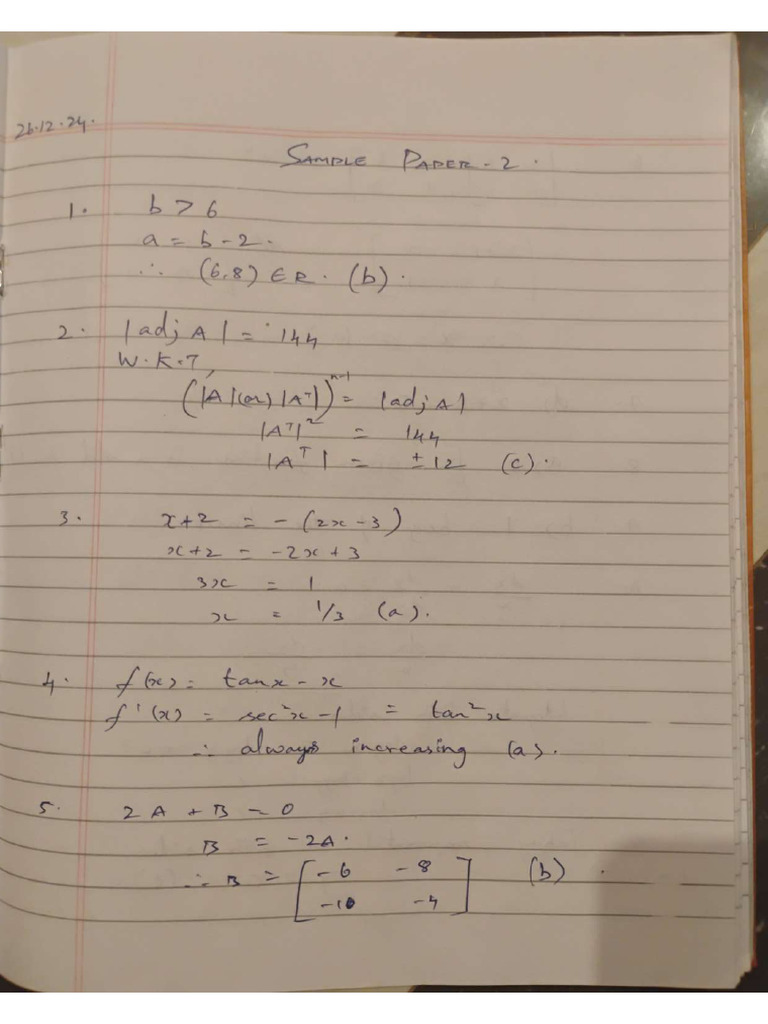 26.12.24.
SAMPLE PAPER - 2.
1. b > 6
a = b - 2.
∴ (6,8) ∈ R. (b).
2. |adj A| = 144
W.K.T,
(|A| (or) |Aᵀ|)ⁿ⁻¹ = |adj A|
|Aᵀ|² = 144
|Aᵀ| = ±12 (c).
3. x+2 = -(2x-3)
x+2 = -2x+3
3x = 1
x = 1/3 (a).
4. f(x) = tanx - x
f'(x) = sec²x - 1 = tan²x
∴ always increasing (a).
5. 2A + B = 0
B = -2A.
∴ B = [-6 -8 (b).
-10 -4]